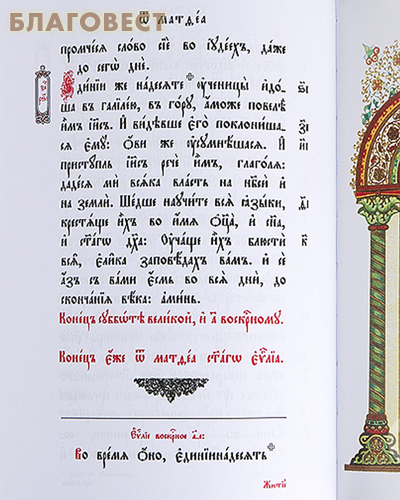 БЛАГОВЕСТ
Ѿ матѳеа
промчеся слово сїе во їудеехъ, даже
до сегѡ дне.
Единїи же надесѧте ᲂу҆ченицы идо-
ша в галїлею, в гору, аможе повеле
и҆мъ і҆и҃съ. И҆ видѣвше Е҆го̀ поклониша-
сѧ е҆му: ѻ҆ви же ᲂу҆сумнѣшасѧ. И҆
приступль і҆и҃съ рече и҆мъ, глаголѧ:
дадесѧ ми всѧка власть на нб҃сѝ и҆
на земли. Шедше научите всѧ ꙗ҆зыки,
крестѧще и҆хъ во и҆мѧ Ѻ҆ц҃а, и҆ сн҃а,
и҆ ст҃агѡ дх҃а: Оу҆чаще и҆хъ блюсти
всѧ, е҆лика заповѣдахъ вамъ. и҆ се
А҆зъ с вами е҆смь во всѧ дни, до
скончанїѧ вѣка: аминь.
Конецъ субботѣ великой, и҆ а҃ воскр҇ному.
Конецъ е҆же ѿ матѳеа ст҃агѡ е҆ѵ҃лїа.
Е҆ѵ҃лїе воскр҇ное а҃:
Во время ѻ҆но, е҆динїинадесѧть
Жити